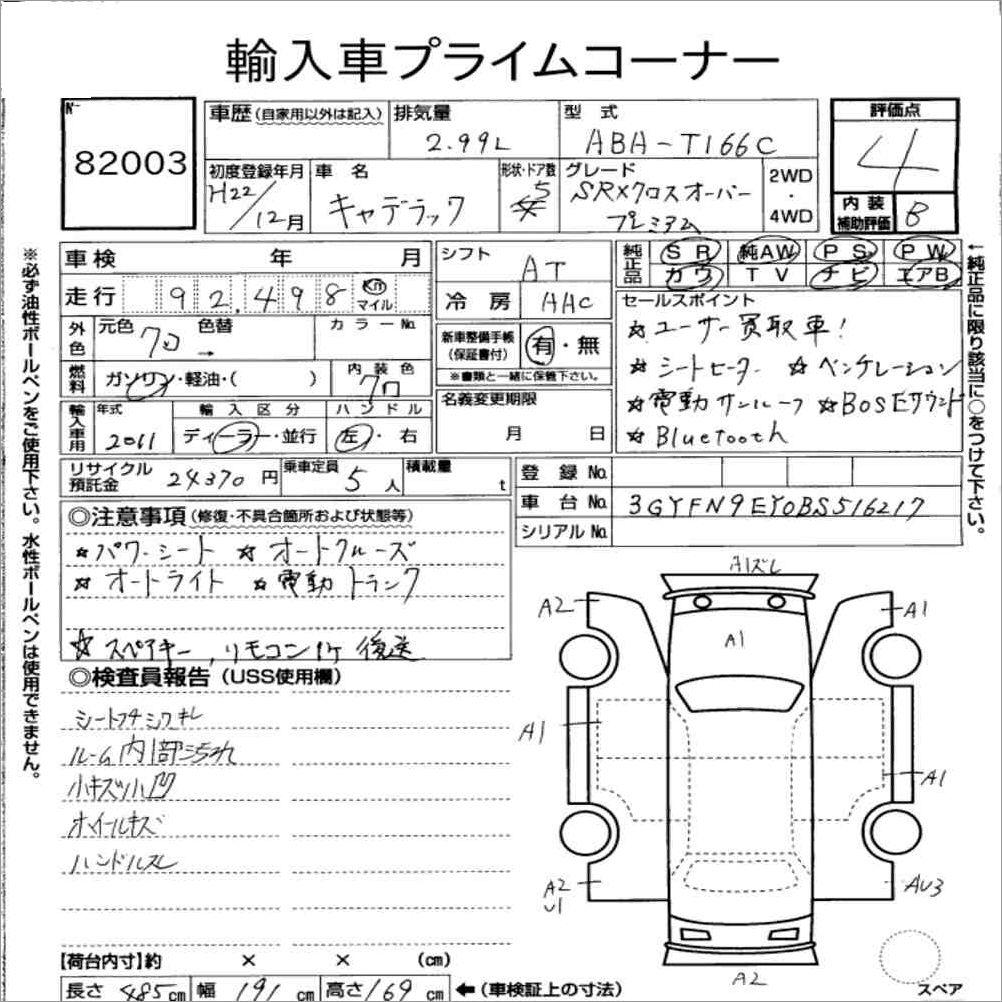 輸入車プライムコーナー
№ 82003
車歴 (自家用以外は記入)
排気量 2.99L
型式 ABA-T166C
評価点 4
初度登録年月 H22/12月
車名 キャデラック
形状・ドア数 5
グレード SRXクロスオーバー プレミアム
2WD・4WD
内装補助評価 B
車検 年 月
シフト AT
純正品 SR 純AW PS PW
カワ TV ナビ エアB
走行 92,498 Km マイル
冷房 AAC
セールスポイント
☆ユーザー買取車!
☆シートヒーター ☆ベンチレーション
☆電動サンルーフ ☆BOSEサウンド
☆Bluetooth
外色 元色 クロ 色替 → カラーNo.
新車整備手帳(保証書付) 有・無
※書類と一緒に保管下さい。
燃料 ガソリン・軽油・( )
内装色 クロ
名義変更期限 月 日
輸入車用 年式 2011
輸入区分 ディーラー・並行
ハンドル 左・右
リサイクル預託金 24370円
乗車定員 5人
積載量 t
登録No.
車台No. 3GYFN9EY0BS516217
シリアルNo.
◎注意事項 (修復・不具合箇所および状態等)
☆パワーシート ☆オートクルーズ
☆オートライト ☆電動トランク
☆スペアキー,リモコン1ケ後送
◎検査員報告 (USS使用欄)
シートコゲシワキレ
ルーム内1部汚れ
小キズ小凹
ホイールキズ
ハンドルスレ
A1ズレ
A2
A1
A1
A1
A1
A2
U1
AU3
A2
スペア
【荷台内寸】約 × × (cm)
長さ 485cm 幅 191cm 高さ 169cm ←(車検証上の寸法)
※必ず油性ボールペンをご使用下さい。水性ボールペンは使用できません。
←純正品に限り該当に○をつけて下さい。